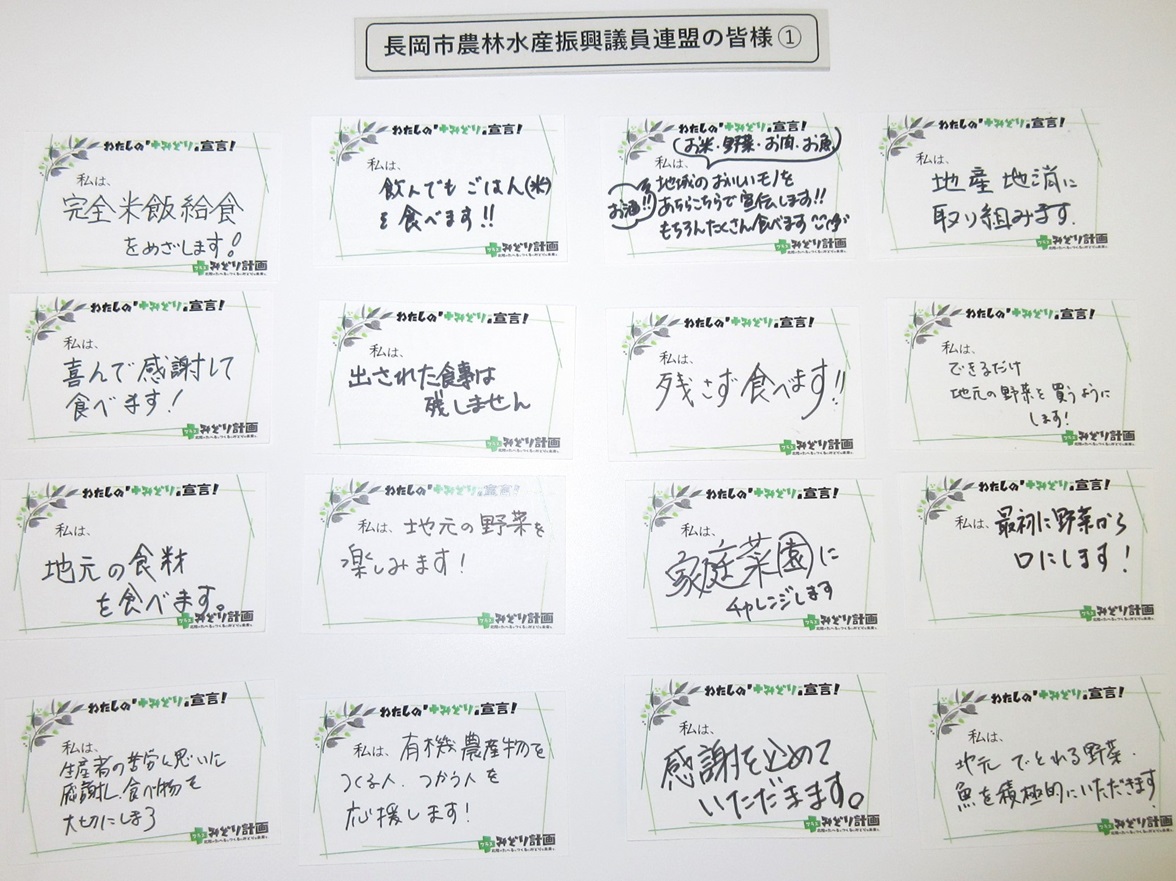 長岡市農林水産振興議員連盟の皆様①
わたしの『+みどり』宣言!
私は、
完全米飯給食
をめざします!
みどり計画
わたしの『+みどり』宣言!
私は、
飲んでも ごはん(米)
を食べます!!
みどり計画
わたしの『+みどり』宣言!
お米・野菜・お肉・お魚
私は、
地域のおいしいモノを
お酒!!
あちらこちらで宣伝します!!
もちろんたくさん食べます
みどり計画
わたしの『+みどり』宣言!
私は、
地産地消に
取り組みます.
みどり計画
わたしの『+みどり』宣言!
私は、
喜んで感謝して
食べます!
みどり計画
わたしの『+みどり』宣言!
私は、
出された食事は
残しません
みどり計画
わたしの『+みどり』宣言!
私は、
残さず食べます!!
みどり計画
わたしの『+みどり』宣言!
私は、
できるだけ
地元の野菜を買うように
します!
みどり計画
わたしの『+みどり』宣言!
私は、
地元の食材
を食べます。
みどり計画
わたしの『+みどり』宣言!
私は、地元の野菜を
楽しみます!
みどり計画
わたしの『+みどり』宣言!
私は、
家庭菜園に
チャレンジします
みどり計画
わたしの『+みどり』宣言!
私は、最初に野菜から
口にします!
みどり計画
わたしの『+みどり』宣言!
私は、
生産者の苦労と思いに
感謝し、食べ物を
大切にしまう
みどり計画
わたしの『+みどり』宣言!
私は、有機農産物を
つくる人、つかう人を
応援します!
みどり計画
わたしの『+みどり』宣言!
私は、
感謝を込めて
いただきます。
みどり計画
わたしの『+みどり』宣言!
私は、
地元でとれる野菜・
魚を積極的にいただきます
みどり計画